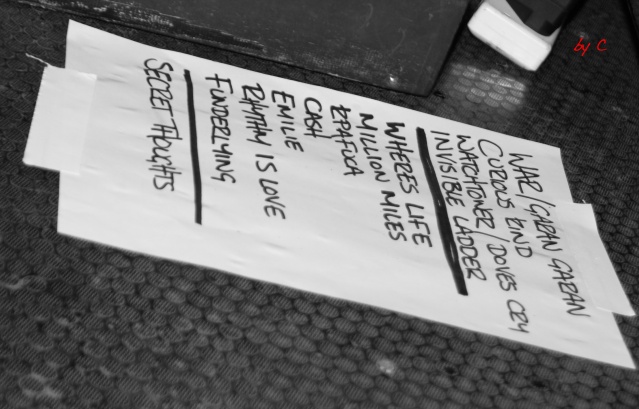 WAR/GARAN GARAN
CURIOUS END
WATCHTOWER/DOVES CRY
INVISIBLE LADDER
WHERES LIFE
MILLION MILES
CASH
EMILIE
RHYTHM IS LOVE
FUNDERLYING
SECRET THOUGHTS
by C